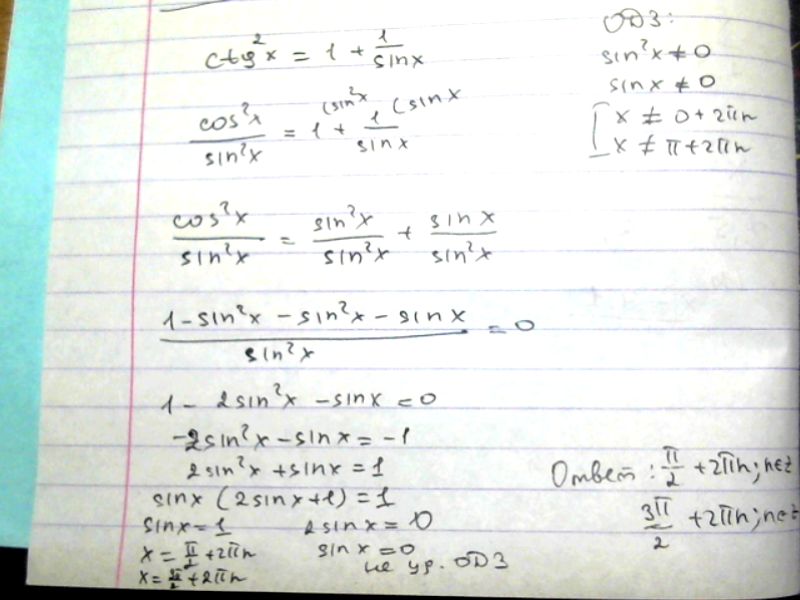 ctg²x = 1 + 1/sinx
ОДЗ:
sin²x ≠ 0
sinx ≠ 0
[ x ≠ 0 + 2πn
x ≠ π + 2πn
cos²x/sin²x = 1 (sin²x + 1/sinx (sinx
cos²x/sin²x = sin²x/sin²x + sinx/sin²x
(1-sin²x - sin²x - sinx)/sin²x = 0
1 - 2sin²x - sinx = 0
-2sin²x - sinx = -1
2sin²x + sinx = 1
sinx (2sinx+1) = 1
sinx = 1 2sinx = 0
x = π/2 + 2πn sinx = 0
x = 3π/2 + 2πn не ур. ОДЗ
Ответ: π/2 + 2πn; n∈z
3π/2 + 2πn; n∈z